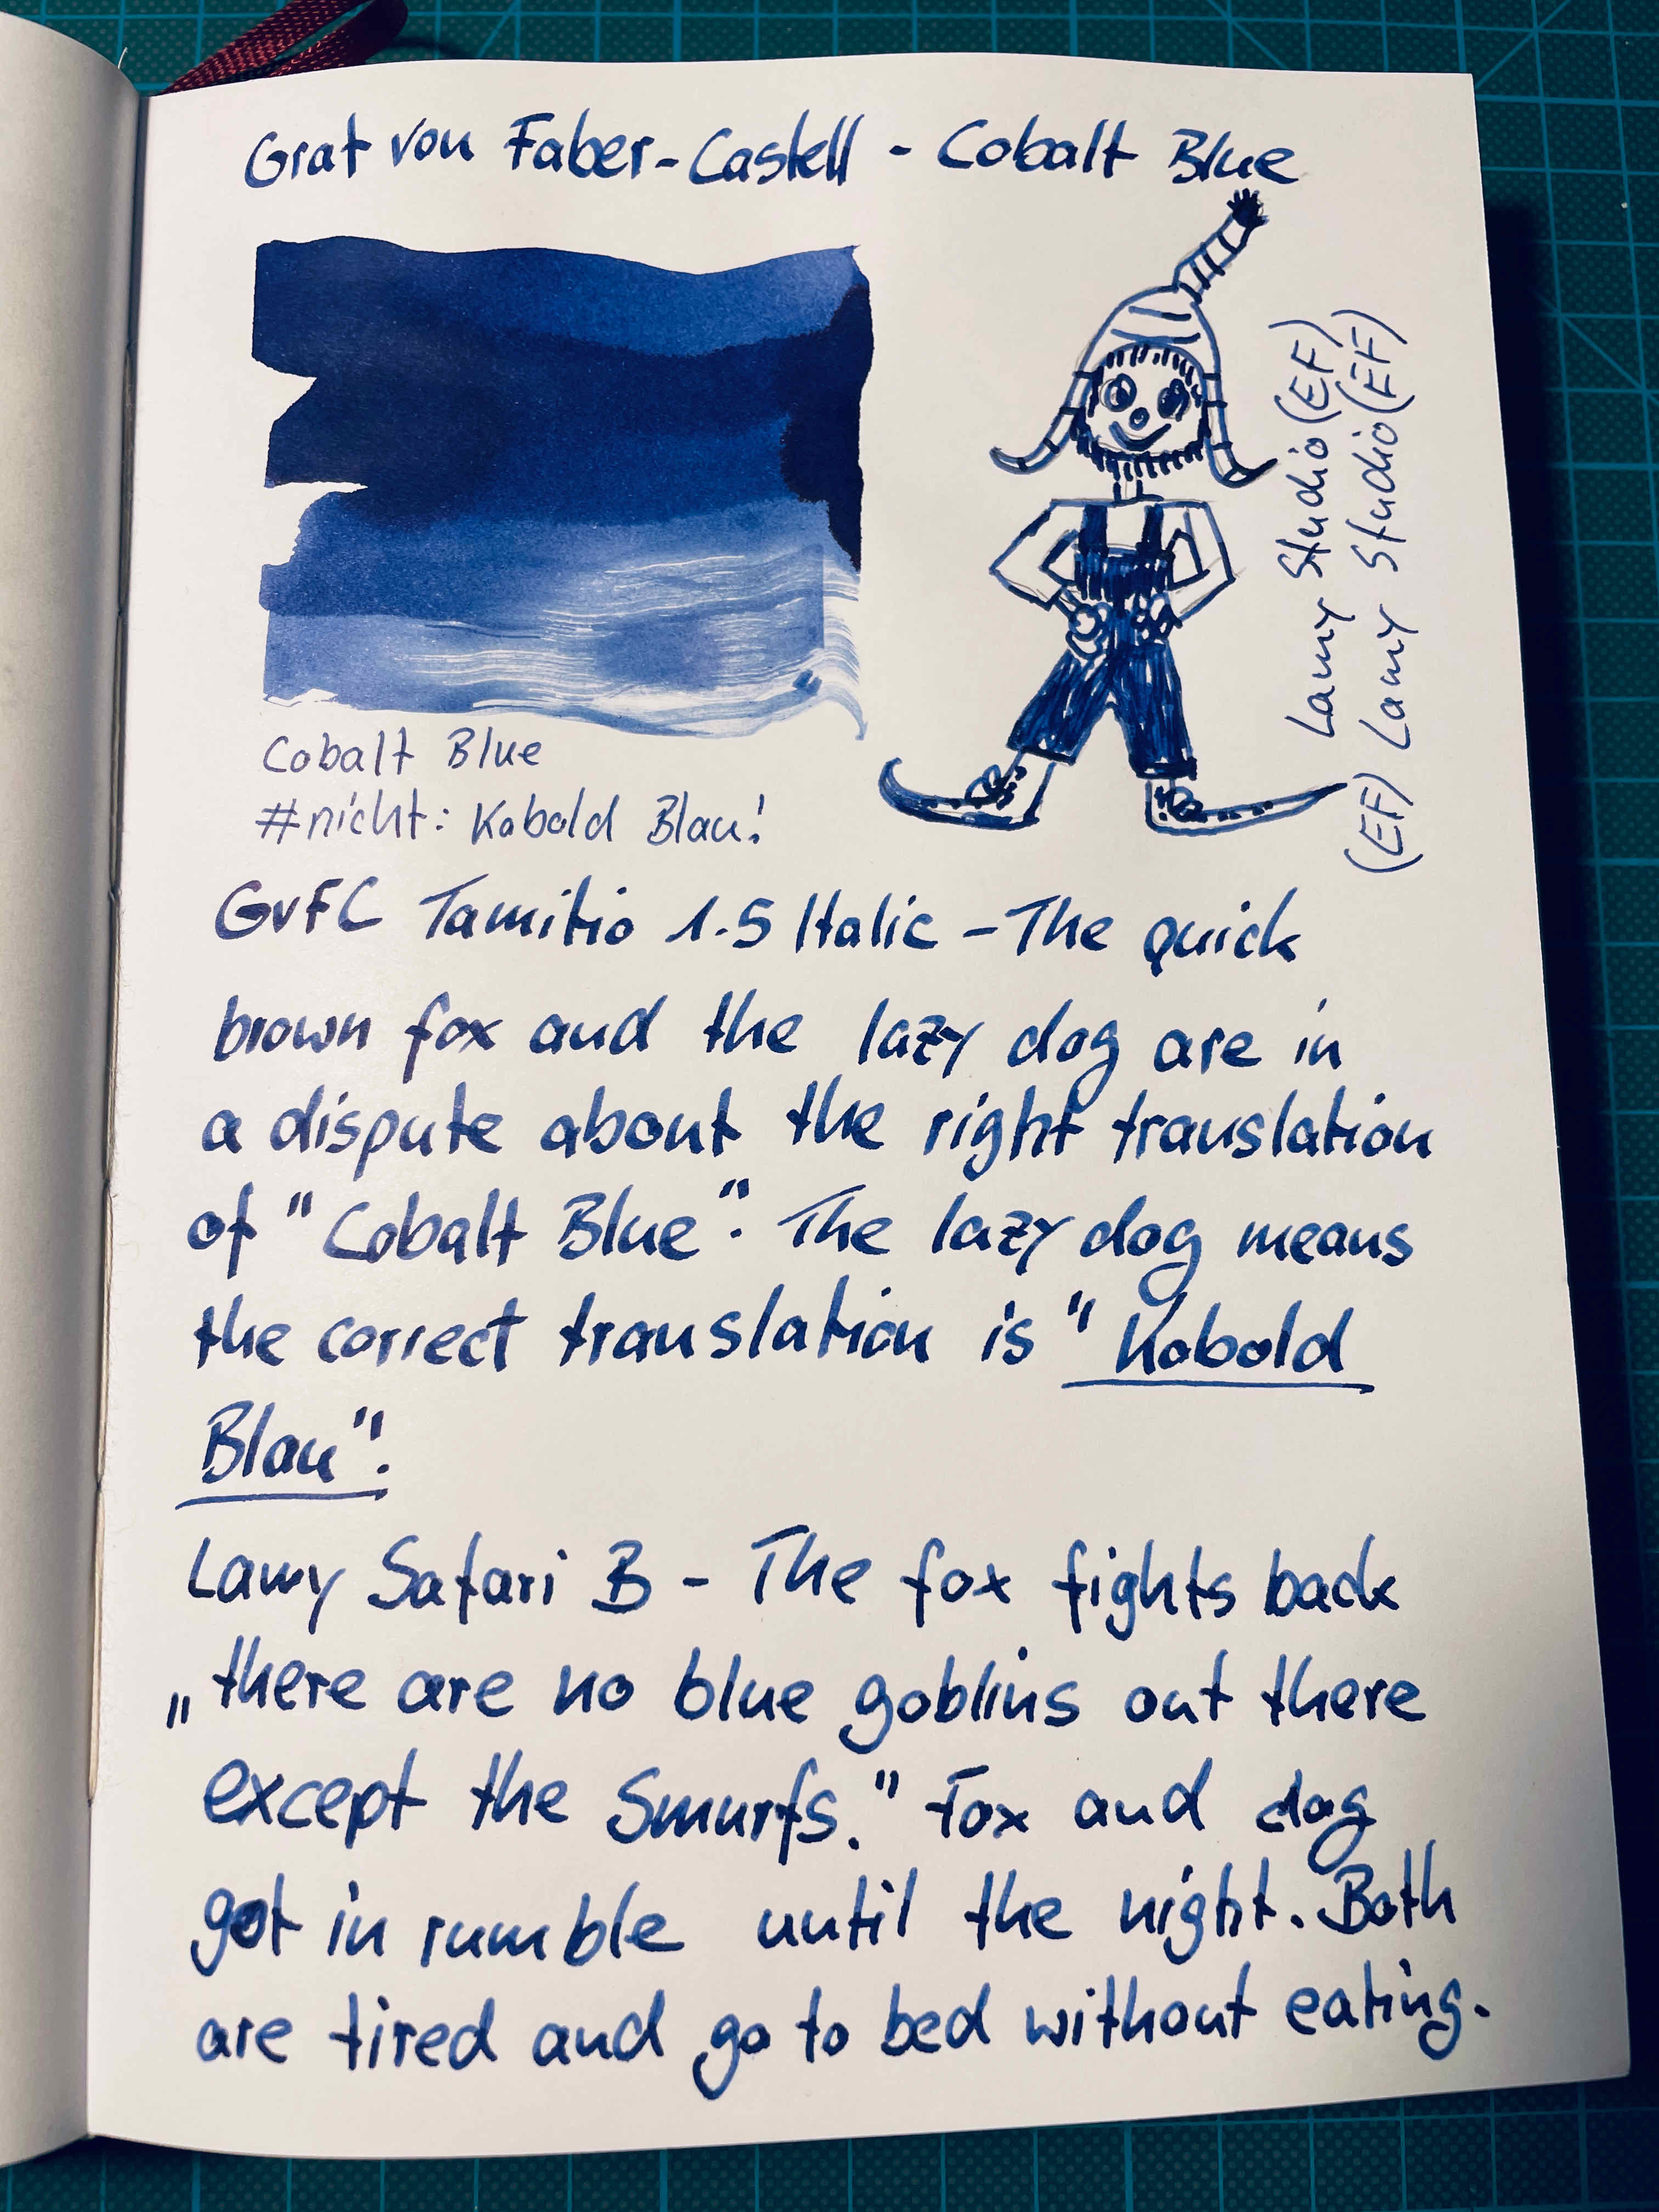 Graf von Faber-Castell - Cobalt Blue
Lamy Studio (EF)
(EF) Lamy Studio (EF)
Cobalt Blue
#nicht: Kobold Blau!
GvFC Tamitio 1.5 Italic - The quick
brown fox and the lazy dog are in
a dispute about the right translation
of "Cobalt Blue". The lazy dog means
the correct translation is "Kobold
Blau".
Lamy Safari B - The fox fights back
„there are no blue goblins out there
except the Smurfs." Fox and dog
got in rumble until the night. Both
are tired and go to bed without eating.